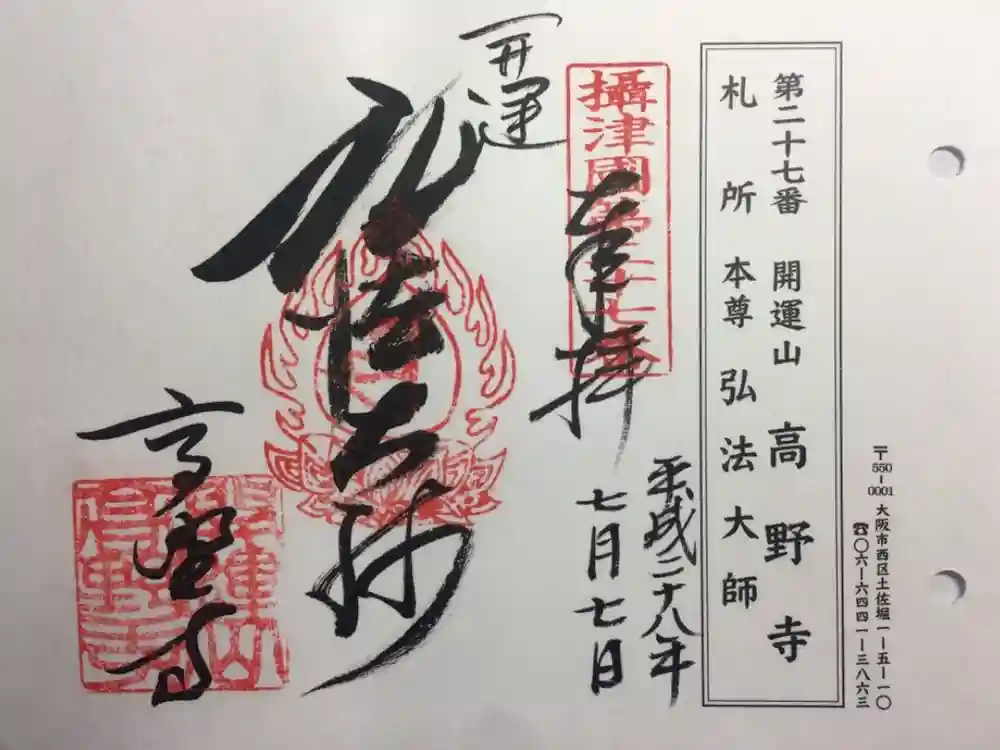 〒550-0001 大阪市西区土佐堀一ー五ー一〇
☎〇六ー六四四一ー三八六三
第二十七番 開運山 高野寺
札所本尊 弘法大師
攝津國第二十七番
奉拝
平成二十八年
七月七日
開運
弘法大師
高野寺